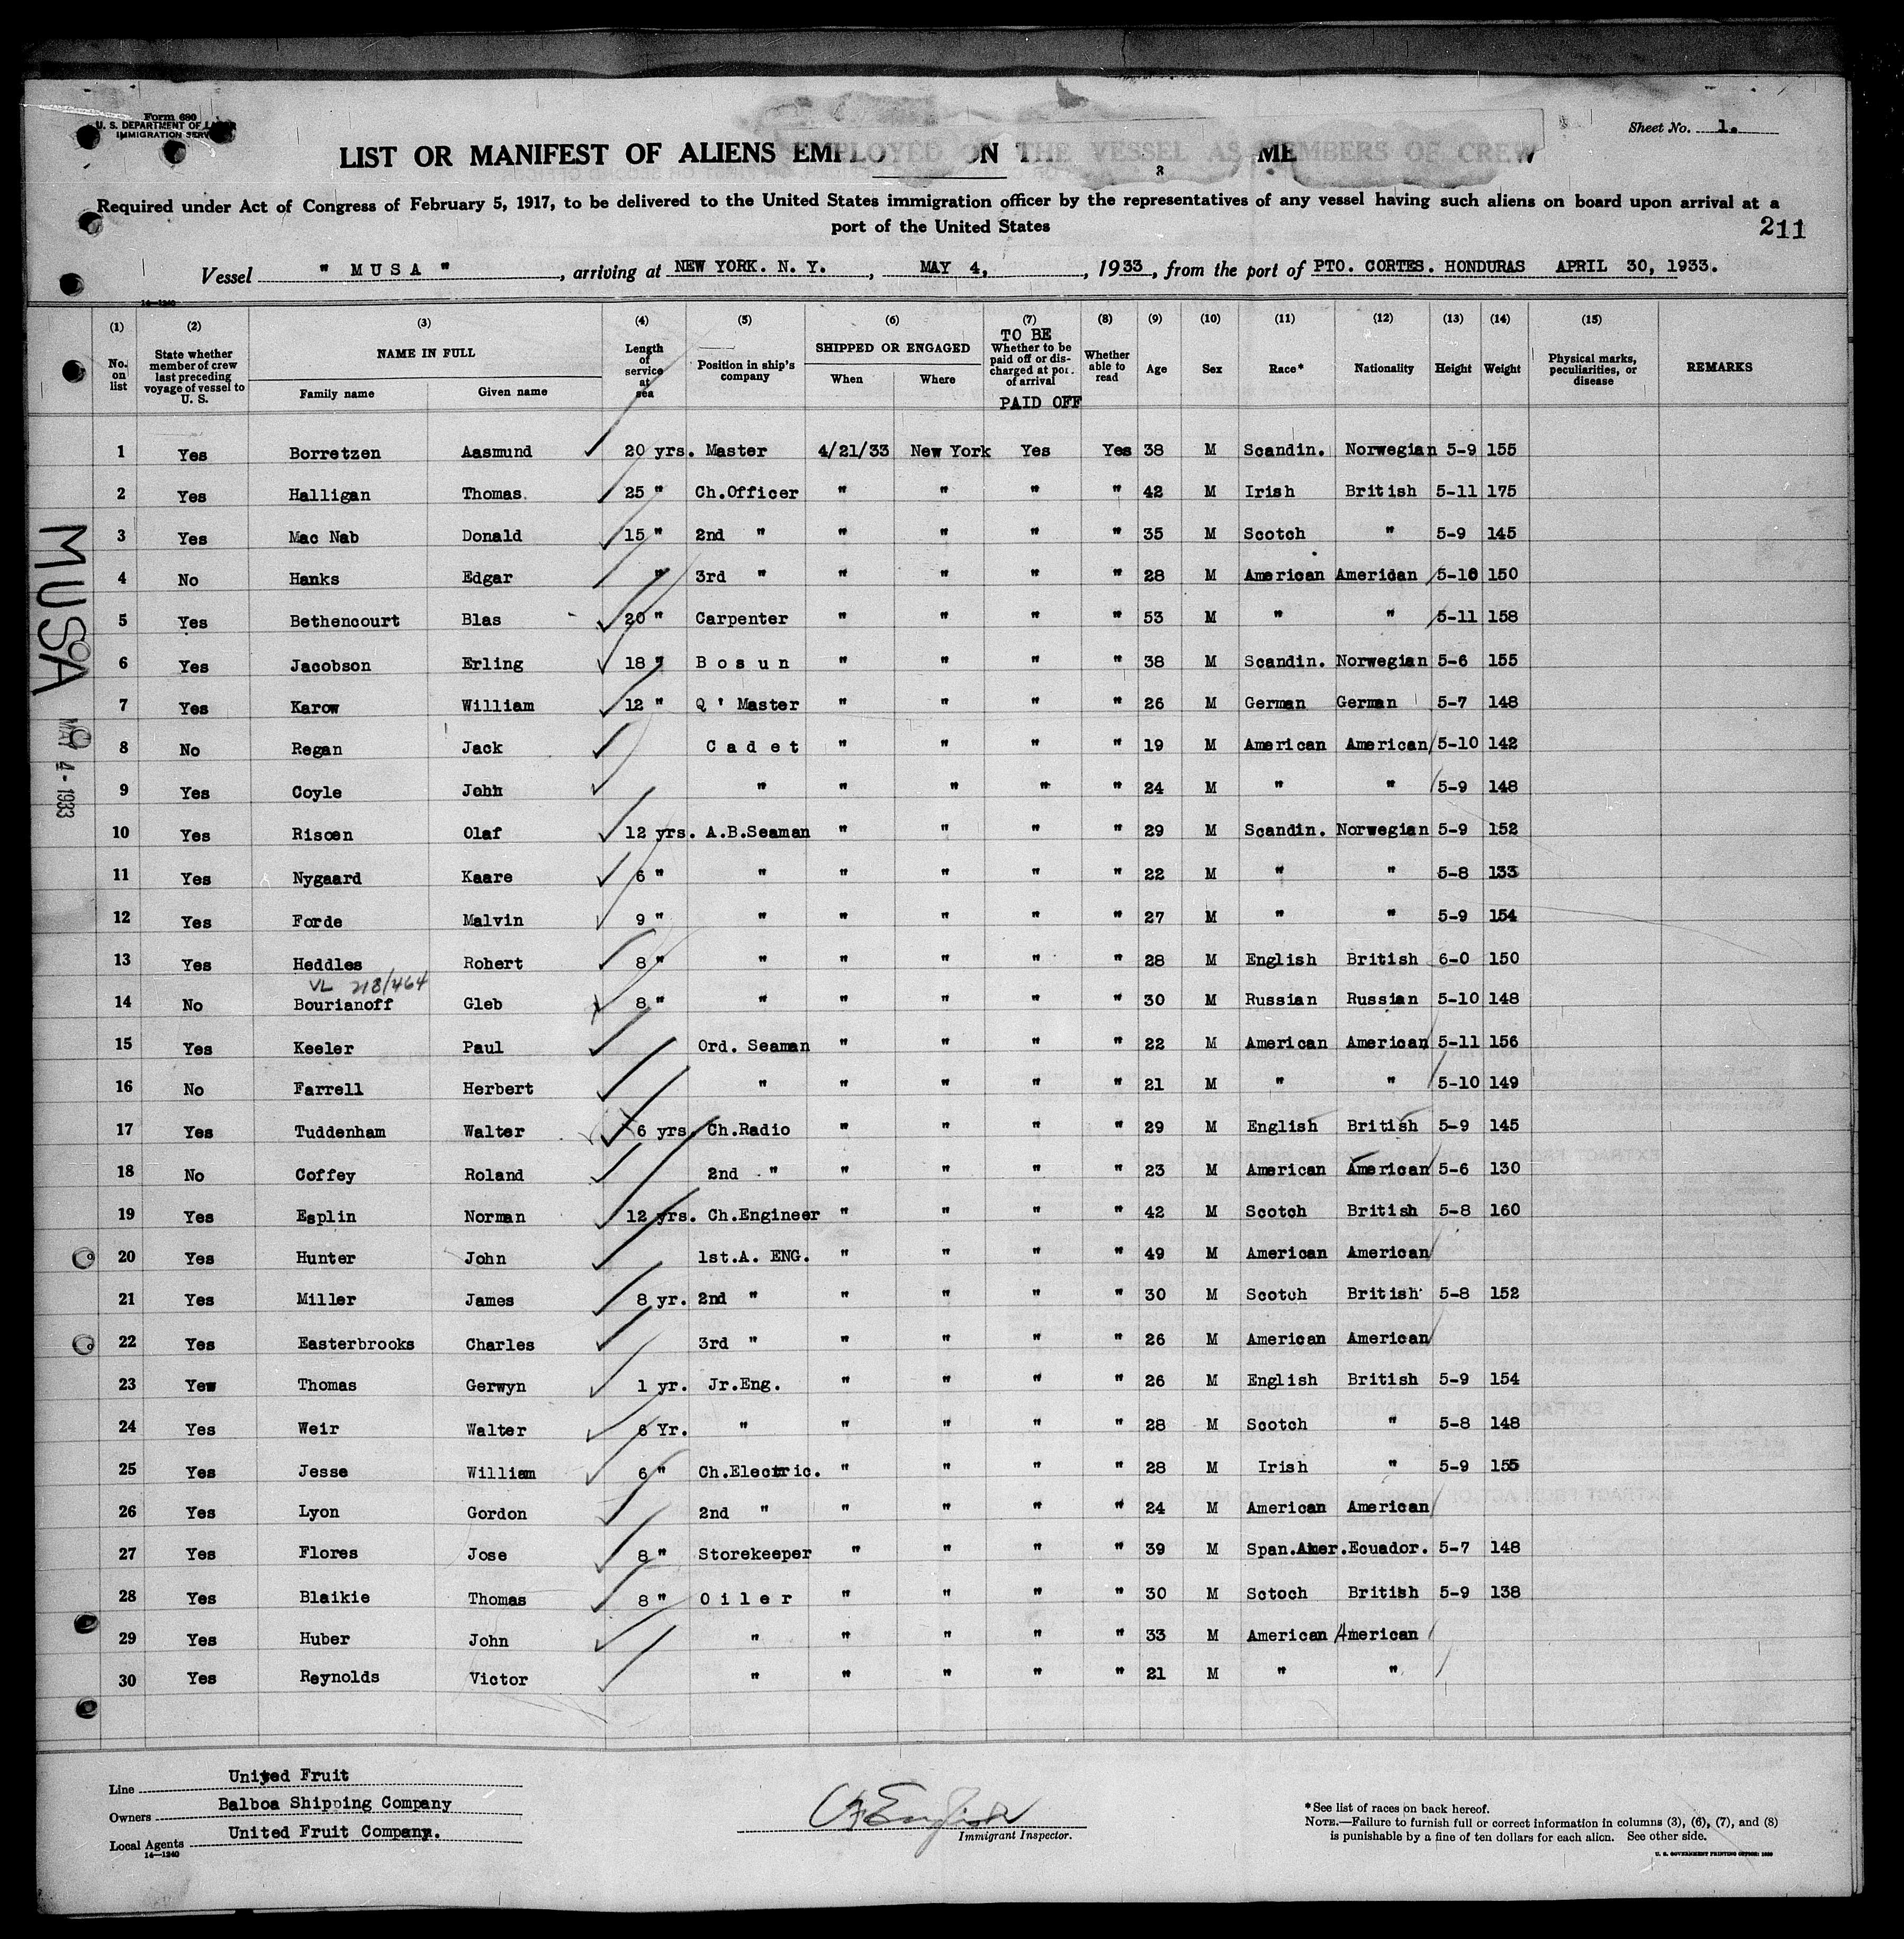 Form 680
U. S. DEPARTMENT OF LABOR
IMMIGRATION SERV
Sheet No. 1.
LIST OR MANIFEST OF ALIENS EMPLOYED ON THE VESSEL AS MEMBERS OF CREW
Required under Act of Congress of February 5, 1917, to be delivered to the United States immigration officer by the representatives of any vessel having such aliens on board upon arrival at a
port of the United States
211
Vessel " M U S A ", arriving at NEW YORK. N. Y., MAY 4, 1933, from the port of PTO. CORTES. HONDURAS APRIL 30, 1933.
14—1240
(1) (2) (3) (4) (5) (6) (7) (8) (9) (10) (11) (12) (13) (14) (15)
No. on list | State whether member of crew last preceding voyage of vessel to U. S. | NAME IN FULL Family name Given name | Length of service at sea | Position in ship's company | SHIPPED OR ENGAGED When Where | TO BE Whether to be paid off or discharged at port of arrival PAID OFF | Whether able to read | Age | Sex | Race* | Nationality | Height | Weight | Physical marks, peculiarities, or disease | REMARKS
1 Yes Borretzen Aasmund 20 yrs. Master 4/21/33 New York Yes Yes 38 M Scandin. Norwegian 5-9 155
2 Yes Halligan Thomas. 25 " Ch.Officer " " " " 42 M Irish British 5-11 175
3 Yes Mac Nab Donald 15 " 2nd " " " " " 35 M Scotch " 5-9 145
4 No Hanks Edgar " 3rd " " " " " 28 M American American 5-10 150
5 Yes Bethencourt Blas 20 " Carpenter " " " " 53 M " " 5-11 158
6 Yes Jacobson Erling 18 " B o s u n " " " " 38 M Scandin. Norwegian 5-6 155
7 Yes Karow William 12 " Q ' Master " " " " 26 M German German 5-7 148
8 No Regan Jack C a d e t " " " " 19 M American American 5-10 142
9 Yes Coyle John " " " " " 24 M " " 5-9 148
10 Yes Riscen Olaf 12 yrs. A.B.Seaman " " " " 29 M Scandin. Norwegian 5-9 152
11 Yes Nygaard Kaare 6 " " " " " " 22 M " " 5-8 133
12 Yes Forde Malvin 9 " " " " " " 27 M " " 5-9 154
13 Yes Heddles Robert 8 " " " " " " 28 M English British 6-0 150
VL 218/464
14 No Bourianoff Gleb 8 " " " " " " 30 M Russian Russian 5-10 148
15 Yes Keeler Paul Ord. Seaman " " " " 22 M American American 5-11 156
16 No Farrell Herbert " " " " " 21 M " " 5-10 149
17 Yes Tuddenham Walter 6 yrs. Ch.Radio " " " " 29 M English British 5-9 145
18 No Coffey Roland 2nd " " " " " 23 M American American 5-6 130
19 Yes Esplin Norman 12 yrs. Ch.Engineer " " " " 42 M Scotch British 5-8 160
20 Yes Hunter John 1st.A. ENG. " " " " 49 M American American
21 Yes Miller James 8 yr. 2nd " " " " " 30 M Scotch British 5-8 152
22 Yes Easterbrooks Charles 3rd " " " " " 26 M American American
23 Yew Thomas Gerwyn 1 yr. Jr.Eng. " " " " 26 M English British 5-9 154
24 Yes Weir Walter 6 Yr. " " " " " 28 M Scotch " 5-8 148
25 Yes Jesse William 6 " Ch.Electric. " " " " 28 M Irish " 5-9 155
26 Yes Lyon Gordon 2nd " " " " " 24 M American American
27 Yes Flores Jose 8 " Storekeeper " " " " 39 M Span.Amer. Ecuador. 5-7 148
28 Yes Blaikie Thomas 8 " O i l e r " " " " 30 M Sctoch British 5-9 138
29 Yes Huber John " " " " " 33 M American American
30 Yes Reynolds Victor " " " " " 21 M " "
MUSA
MAY 4 - 1933
Line United Fruit
Owners Balboa Shipping Company
Local Agents United Fruit Company.
14—1240
Immigrant Inspector.
*See list of races on back hereof.
NOTE.—Failure to furnish full or correct information in columns (3), (6), (7), and (8)
is punishable by a fine of ten dollars for each alien. See other side.
U. S. GOVERNMENT PRINTING OFFICE: 1930